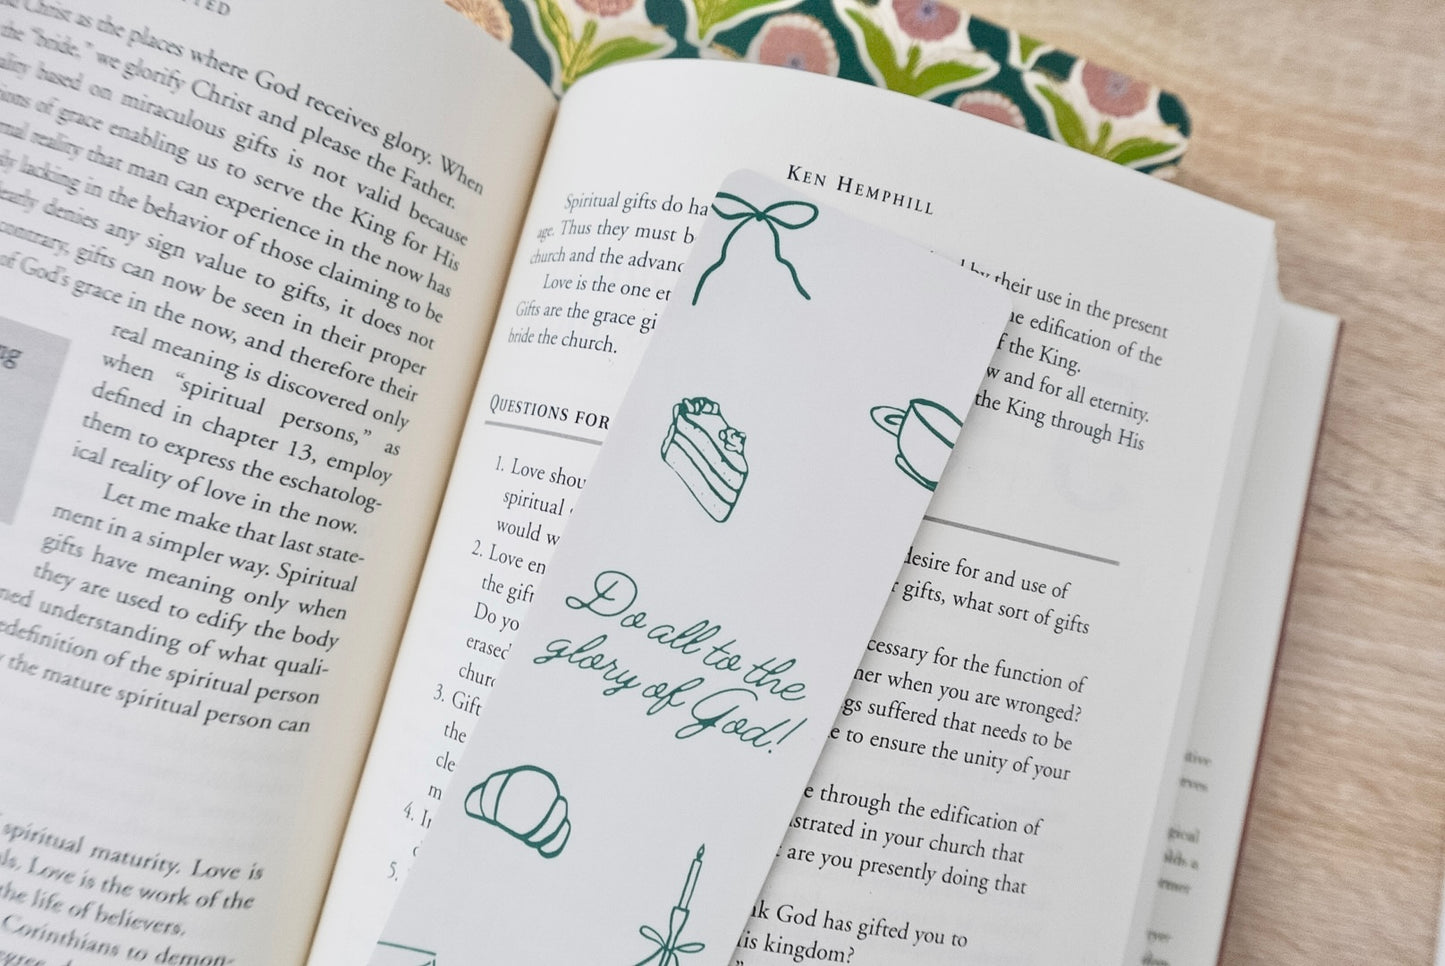 TED
Christ as the places where God receives glory. When
the "bride," we glorify Christ and please the Father.
based on miraculous gifts is not valid because
of grace enabling us to serve the King for His
reality that man can experience in the now has
lacking in the behavior of those claiming to be
denies any sign value to gifts, it does not
contrary, gifts can now be seen in their proper
of God's grace in the now, and therefore their
real meaning is discovered only
when "spiritual persons," as
defined in chapter 13, employ
them to express the eschatolog-
ical reality of love in the now.
Let me make that last state-
ment in a simpler way. Spiritual
gifts have meaning only when
they are used to edify the body
understanding of what quali-
of the spiritual person
the mature spiritual person can
spiritual maturity. Love is
Love is the work of the
the life of believers.
Corinthians to demon-
KEN HEMPHILL
Spiritual gifts do ha
age. Thus they must b
by their use in the present
church and the advanc
edification of the
Love is the one et
f the King.
Gifts are the grace gi
w and for all eternity.
bride the church.
the King through His
QUESTIONS FOR
1. Love shou
desire for and use of
spiritual
gifts, what sort of gifts
would w
2. Love en
cessary for the function of
the gift
her when you are wronged?
Do yo
gs suffered that needs to be
erased
e to ensure the unity of your
churc
3. Gift
e through the edification of
the
strated in your church that
cle
are you presently doing that
m
4. I
God has gifted you to
5.
is kingdom?
Do all to the
glory of God!